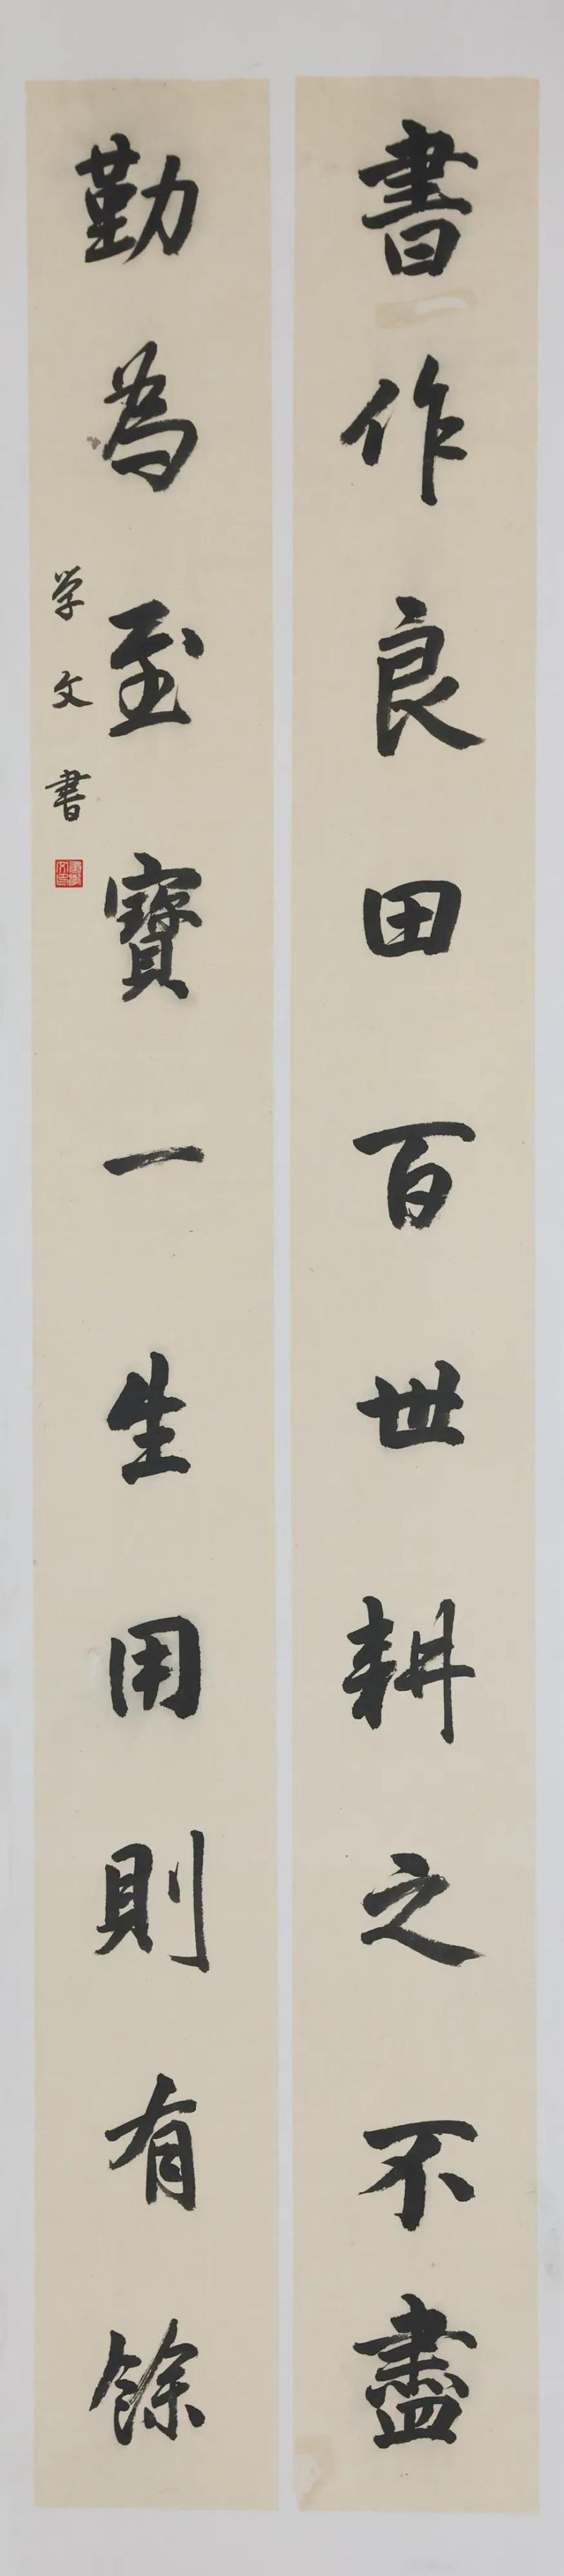 書作良田百世耕之不盡
勤為至寶一生用則有餘
学文書